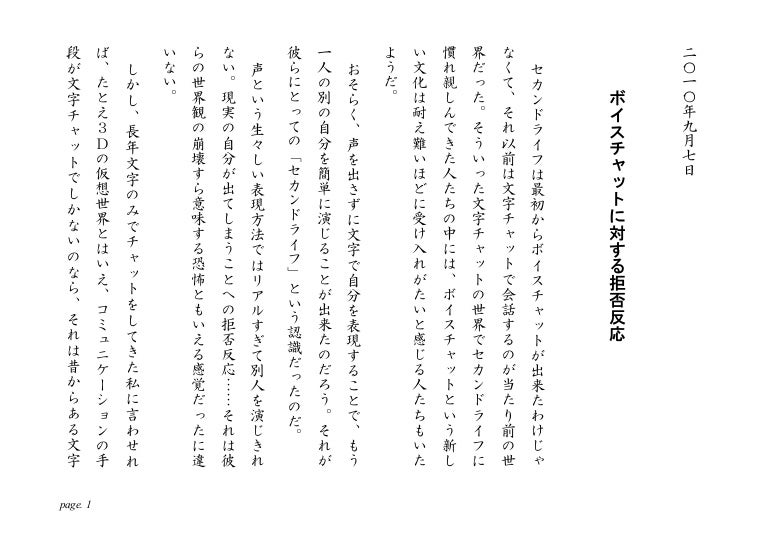 二〇一〇年九月七日
ボイスチャットに対する拒否反応
セカンドライフは最初からボイスチャットが出来たわけじゃ
なくて、それ以前は文字チャットで会話するのが当たり前の世
界だった。そういった文字チャットの世界でセカンドライフに
慣れ親しんできた人たちの中には、ボイスチャットという新し
い文化は耐え難いほどに受け入れがたいと感じる人たちもいた
ようだ。
おそらく、声を出さずに文字で自分を表現することで、もう
一人の別の自分を簡単に演じることが出来たのだろう。それが
彼らにとっての「セカンドライフ」という認識だったのだ。
声という生々しい表現方法ではリアルすぎて別人を演じきれ
ない。現実の自分が出てしまうことへの拒否反応……それは彼
らの世界観の崩壊すら意味する恐怖ともいえる感覚だったに違
いない。
しかし、長年文字のみでチャットをしてきた私に言わせれ
ば、たとえ３Ｄの仮想世界とはいえ、コミュニケーションの手
段が文字チャットでしかないのなら、それは昔からある文字
page. 1